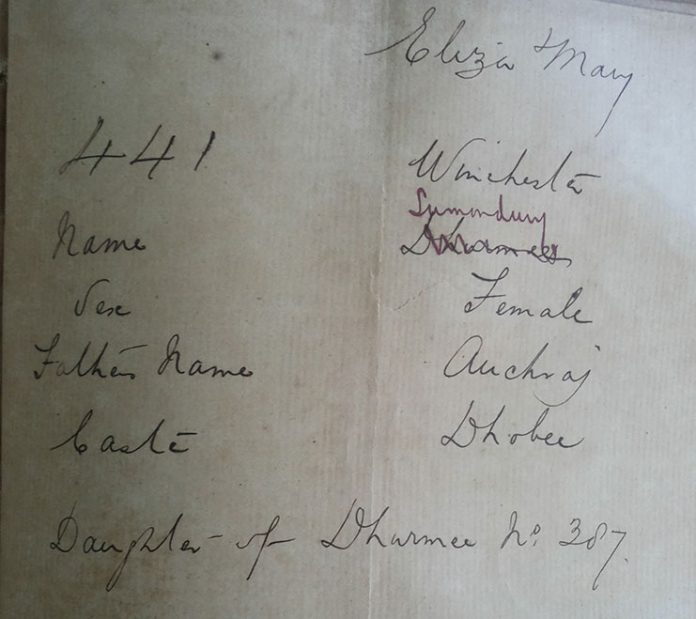 Eliza Mary
441 Winchester
Sumundury
Name Dhurmee
Sex Female
Father's Name Auchraj
Caste Dhobee
Daughter of Dhurmee No. 387.